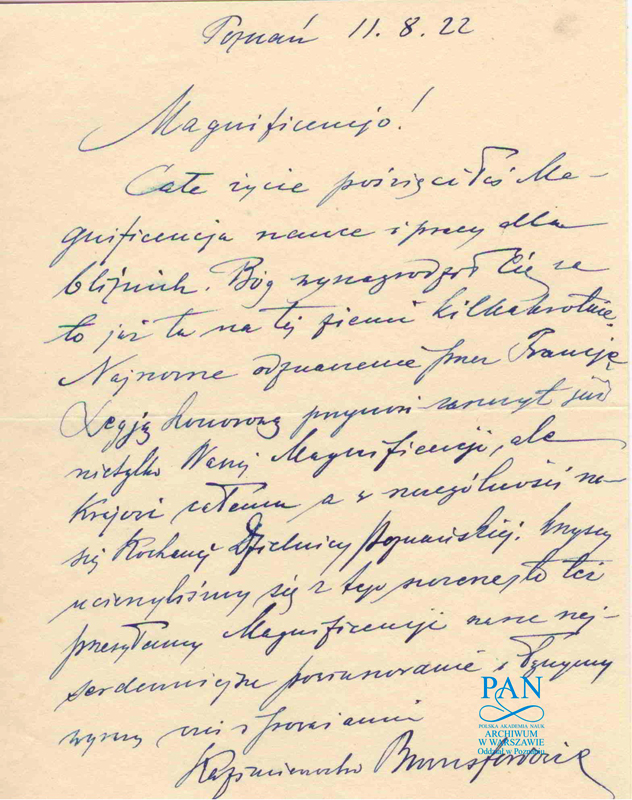 Poznań 11.8.22
Magnificencjo!
Całe życie poświęciłeś Ma-
gnificencja nauce i pracy dla
bliźnich. Bóg wynagrodził Cię za
to już tu na tej ziemi kilkakrotnie.
Najnowsze odznaczenie przez Francję
Legją Honorową przynosi zaszczyt już
nietylko Waszej Magnificencji, ale
Krajowi całemu a w szczególności na-
szej Kochanej Dzielnicy Poznańskiej. Wszyscy
ucieszyliśmy się z tego szczerze, to też
przesyłamy Magnificencji nasze naj-
serdeczniejsze powinszowanie i łączymy
wyrazy czci i poważania
PAN
POLSKA AKADEMIA NAUK
ARCHIWUM
W WARSZAWIE
Oddział w Poznaniu